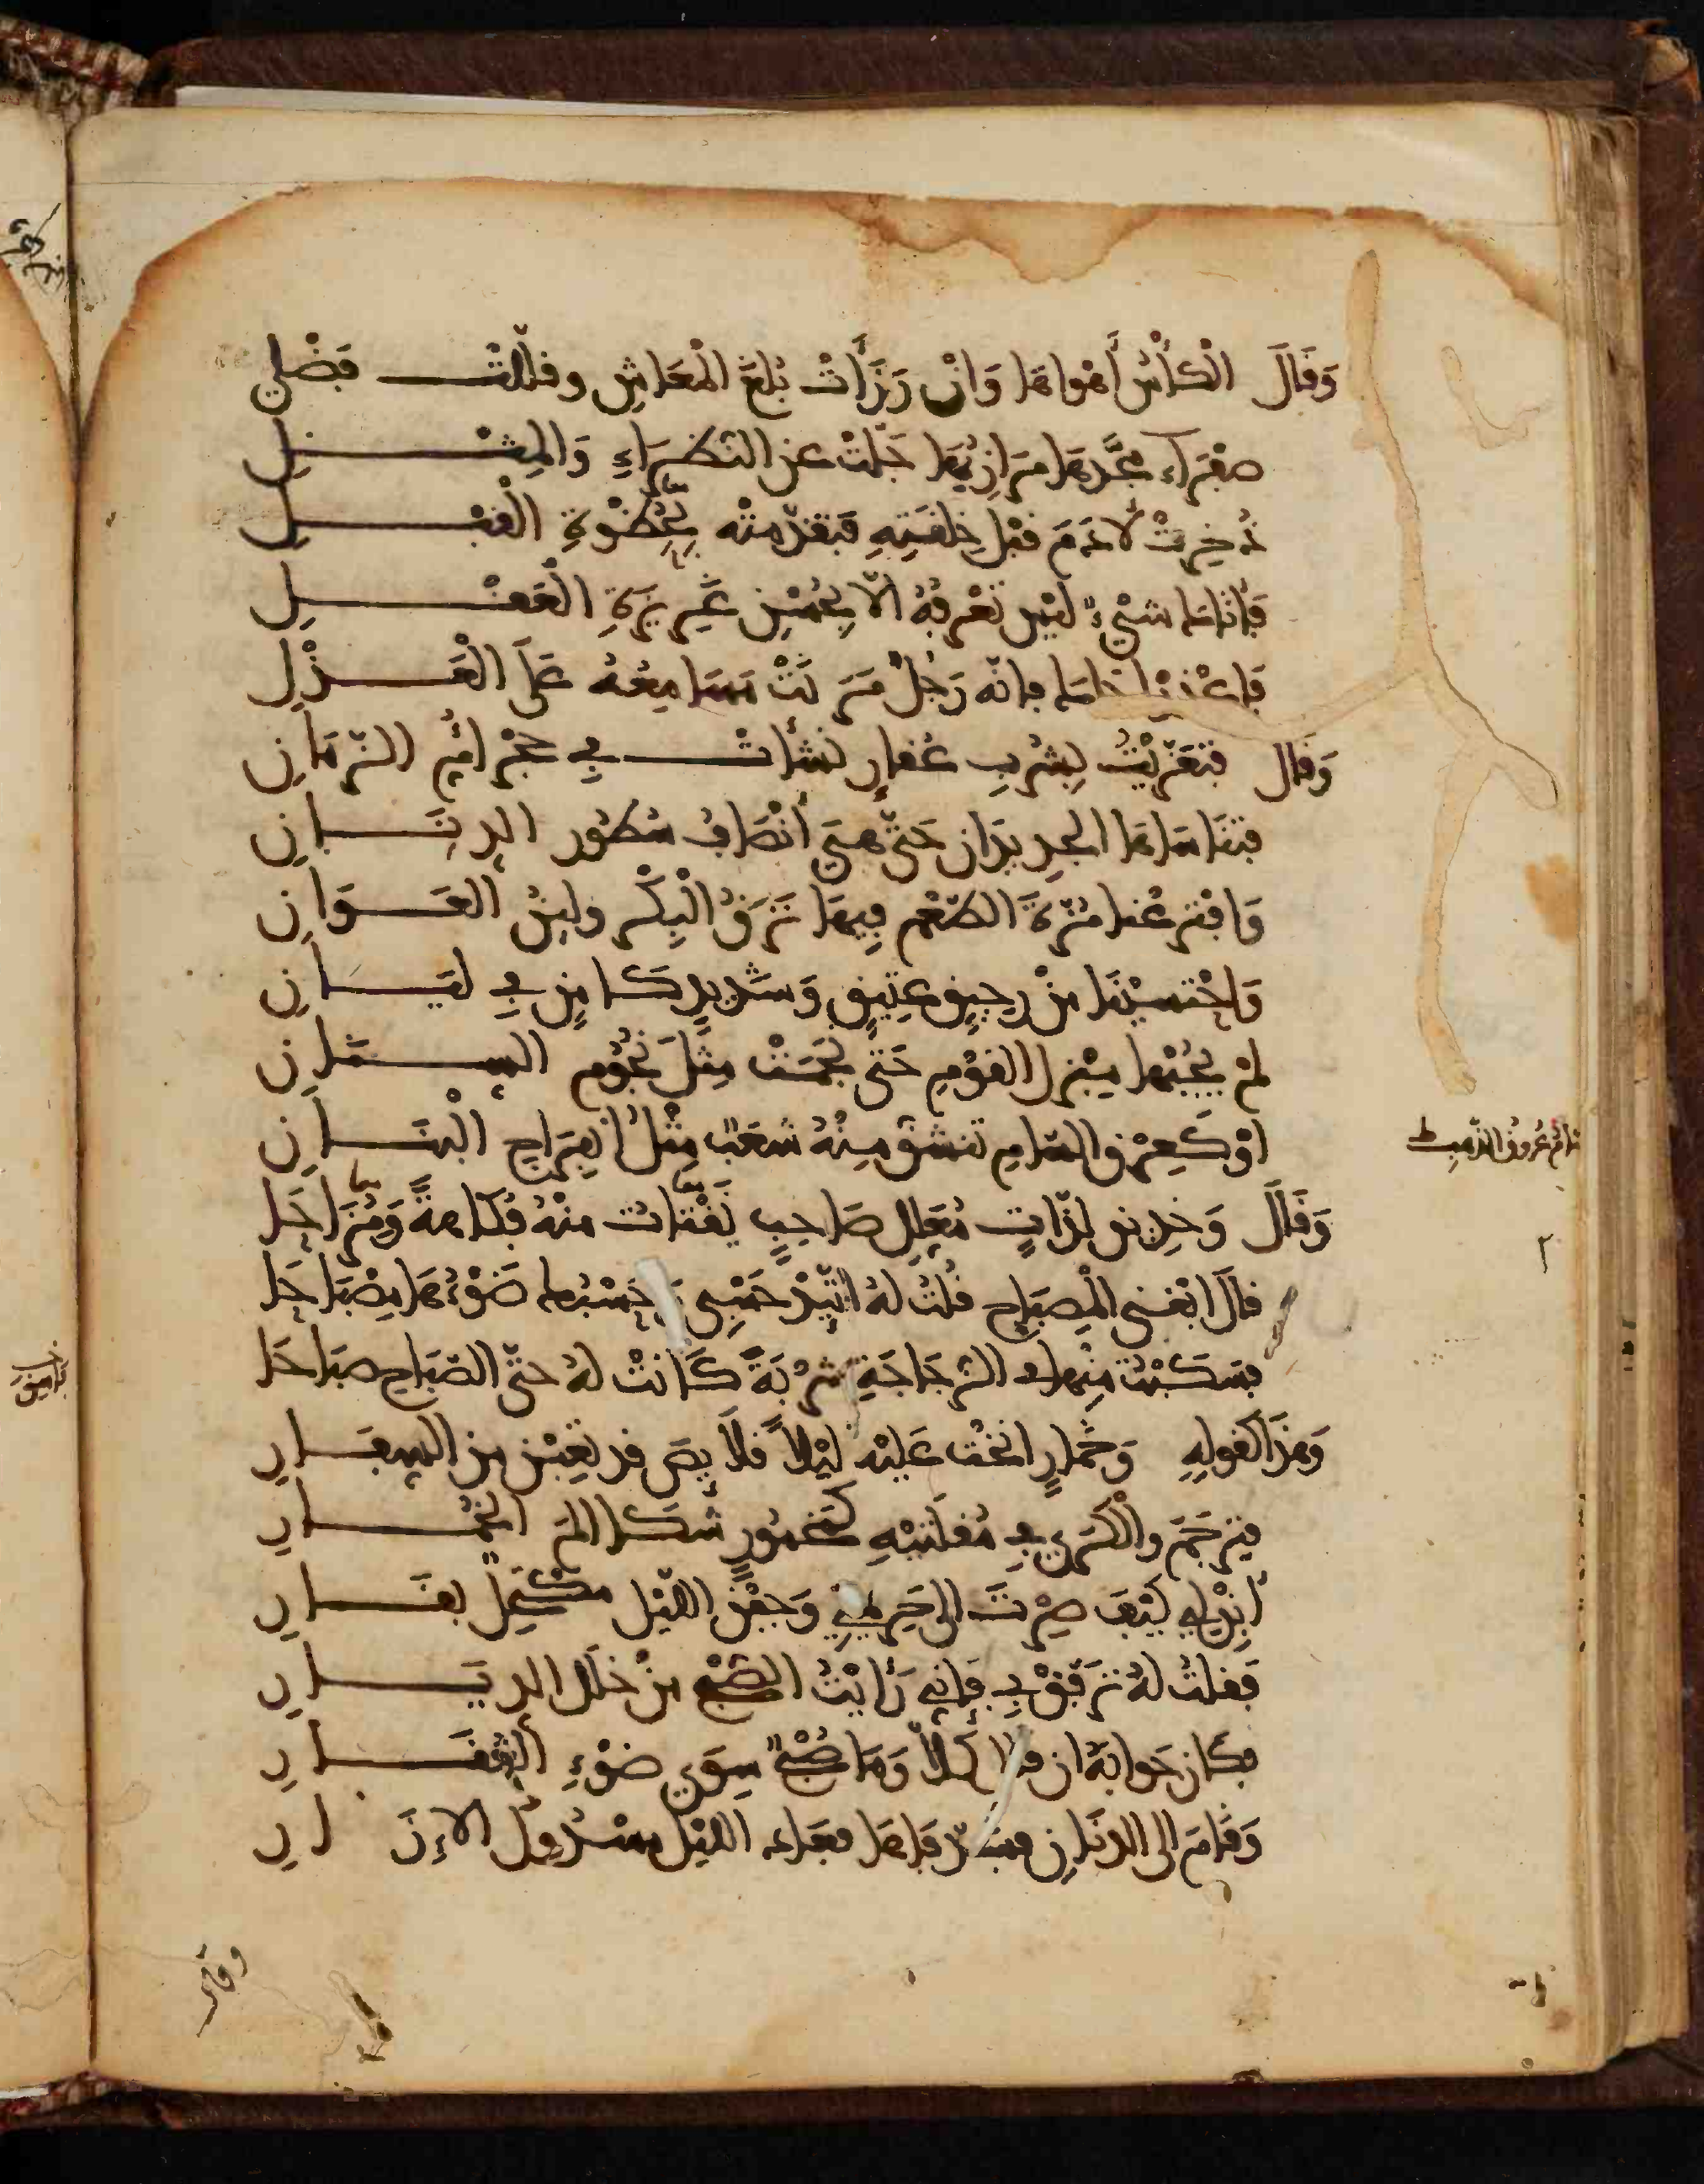 وَقَالَ الْكَأْسُ أَهْوَاهَا وَانْ رَزَأَتْ بُلَغَ الْمَعَاشِ وقلّلتْ فَضْلِي
صفْرَاء مجَّدهَا مَرَازِبُهَا جَلّتْ عن النّظَرَاءِ وَالمِثْلِ
ذُخِرتْ لآدَمَ قبْل خِلقَتِهِ فَتقدّمتْه بخُطْوَةِ الْقَبْلِ
فَأتَاكَ شيْءٌ ليْس تَعْرِفهُ الّا بحُسْنِ غَرِيزَةِ الْعَقْلِ
فَاعْذرْ اخاك فانّه رَجُلٌ مَرَنَتْ مَسَامِعُهُ عَلَى الْعَذْلِ
وَقال فتعَزّيْتُ بِشُرْبِ عُقارٍ نشأتْ في حجْر أُمِّ الزّمَانِ
فتنَاسَاهَا الجدِيدَان حَتّى هيَ أنْصَافُ شطُور الدِنَانِ
وَافْترعْنا مُزّةَ الطّعْم فِيهَا نَزَقُ الْبِكْر ولينُ الْعَوَانِ
وَاحْتسيْنَا منْ رحِيقٍ عتِيقٍ وَشَدِيدٍ كَامِنٍ في لِيَانِ
لمْ يجُبْها مبْزل القوْمِ حَتّى نجَمَتْ مِثْلَ نجُومِ السِنَانِ
اوْ كَعِرْق السّامِ تنشقّ مِنْهُ شعَبٌ مِثْلُ انفِرَاجِ الْبنَانِ
وَقَالَ وَخدِين لذّاتٍ مُعَلِل صَاحِبٍ يَقْتَات منْهُ فُكَاهةً وَمُزَاحَا
قالَ ابْغنى المِصبَاح قُلتُ لهُ اتّئِدْ حَسْبِى وَحَسْبُك ضَوْءُهَا مِصْبَاحَا
فسَكَبْتُ مِنها في الزّجَاجَةِ شرْبَةً كَانتْ لهُ حتّى الصّبَاح صبَاحَا
وَهذَا كقولِهِ وَخمّارٍ انخْت عَليْه ليْلاً قلَائصَ قد تعِبْن من السِفَارِ
فترجَمَ والْكرَى في مُقلَتيْهِ كمخمُورٍ شَكَا المَ الخُمَارِ
أبنْ لِي كيْفَ صِرْتَ الى حَرِيمِي وَجفْن اللّيْل مكْتحِلٌ بقَارِ
فَقلتُ لهُ تَرَفّقْ بِي فَإِنّي رَأيْتُ الصّبْح منْ خَلَل الدِيَارِ
فكان جَوابهُ ان قال كَلّا وَمَا صُبْحٌ سِوَى ضوْءِ الْعُقَارِ
وَقَامَ الى الدنَانِ فسَدّ فَاهَا فعَادَ اللّيْل مسْدُولَ الازَارِ
وقال